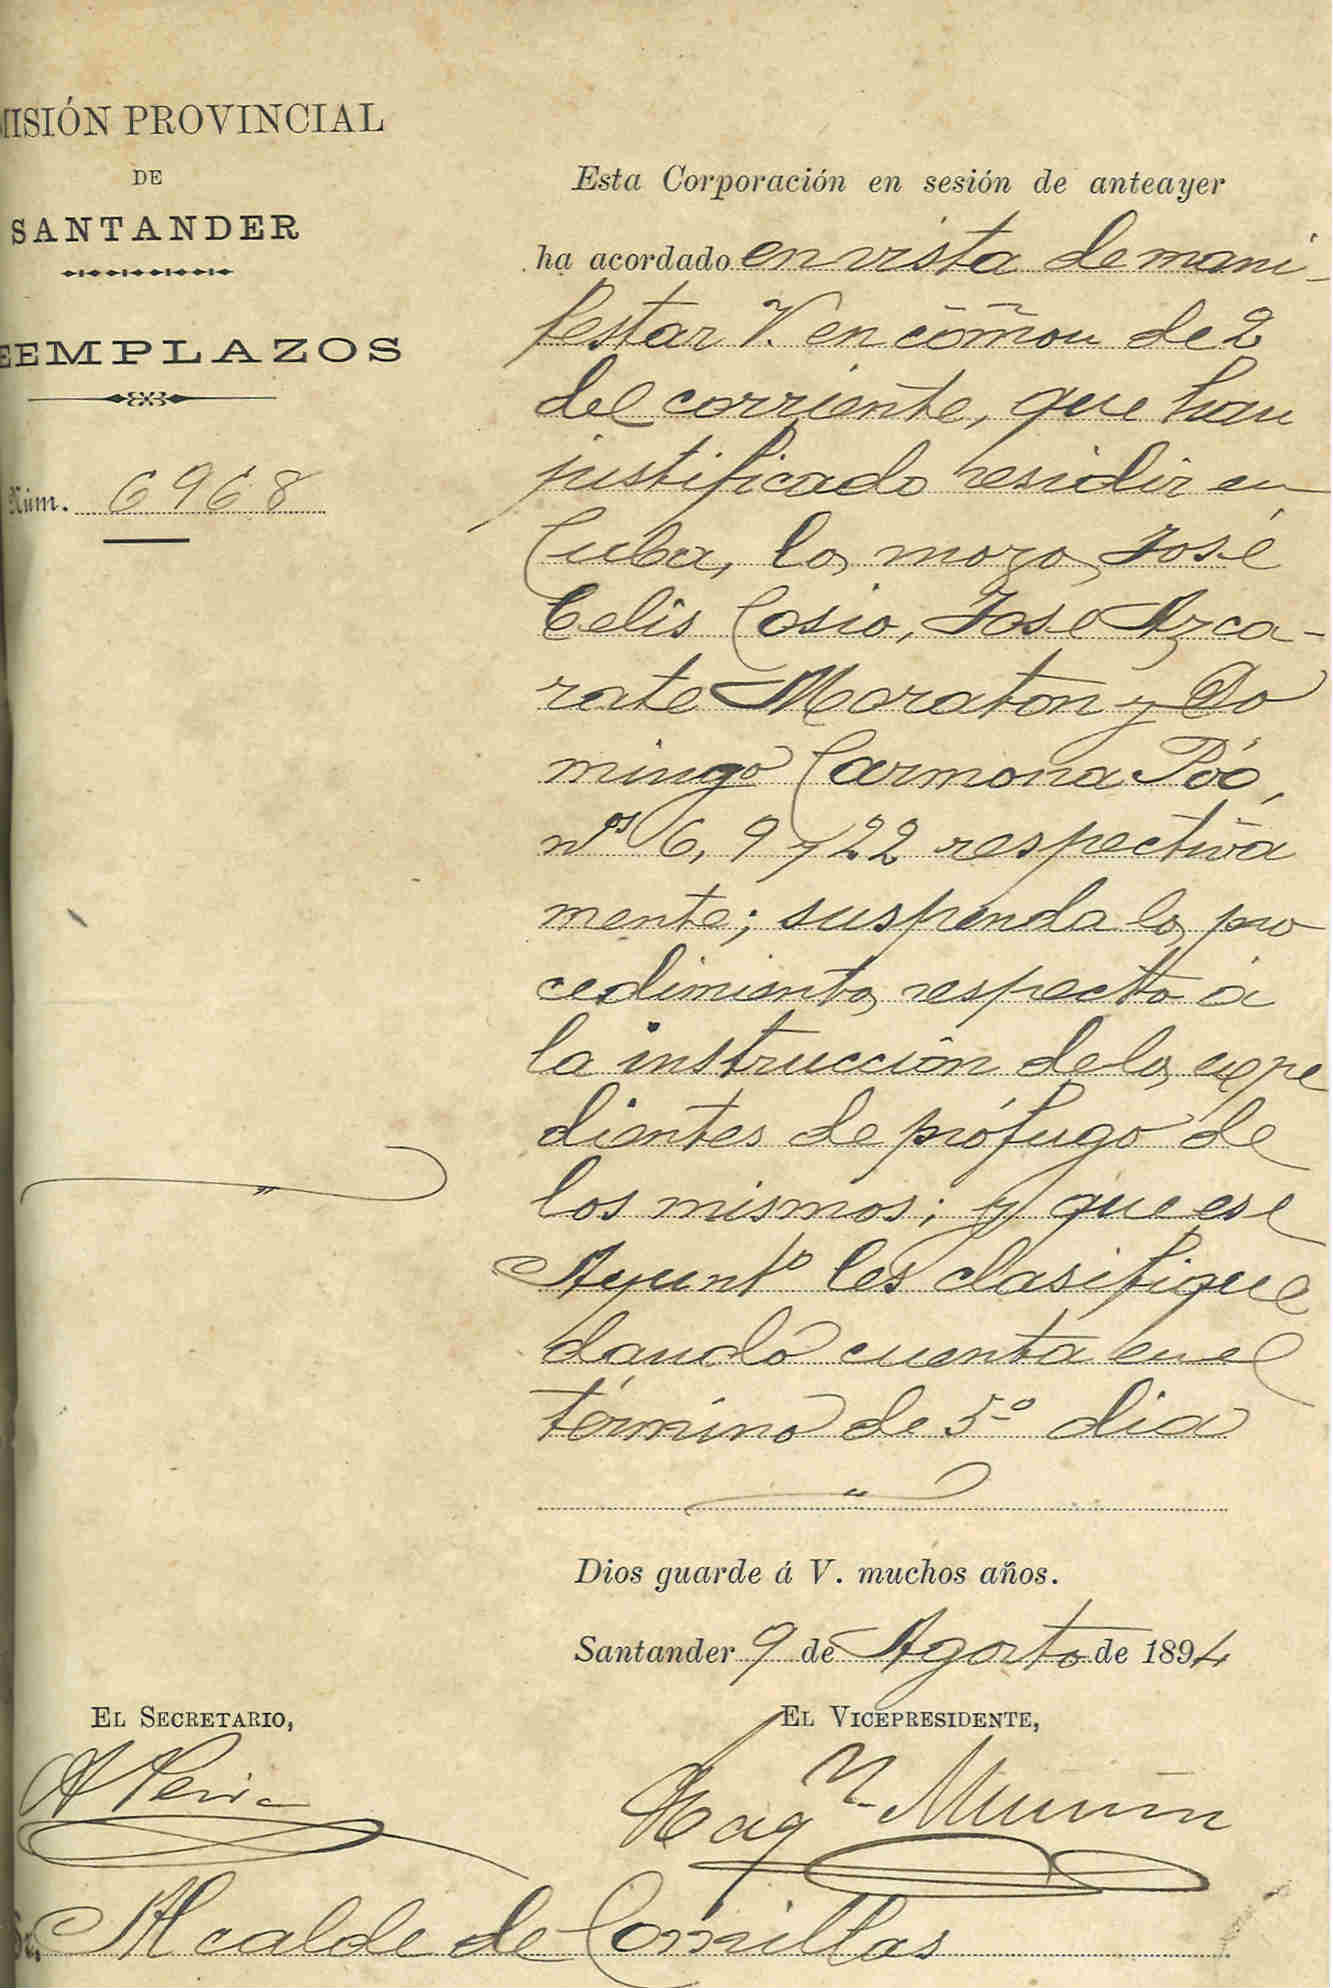 MISIÓN PROVINCIAL
DE
SANTANDER
EEMPLAZOS
Núm. 6968
Esta Corporación en sesión de anteayer
ha acordado en vista de mani-
festar V. en comon de 2
del corriente, que han
justificado residir en
Cuba, los mozos José
Celis Cosio, José Azca-
rate Maraton y Do
mingo Carmona Póo,
nos 6, 9 y 22 respectiva
mente; suspenda los pro
cedimientos respecto á
la instrucción de los expe
dientes de prófugo de
los mismos; y que ese
Ayunto les clasifique
dando cuenta en el
término de 5º dia
Dios guarde á V. muchos años.
Santander 9 de Agosto de 1894
EL SECRETARIO,
EL VICEPRESIDENTE,
A
Sr. Alcalde de Comillas